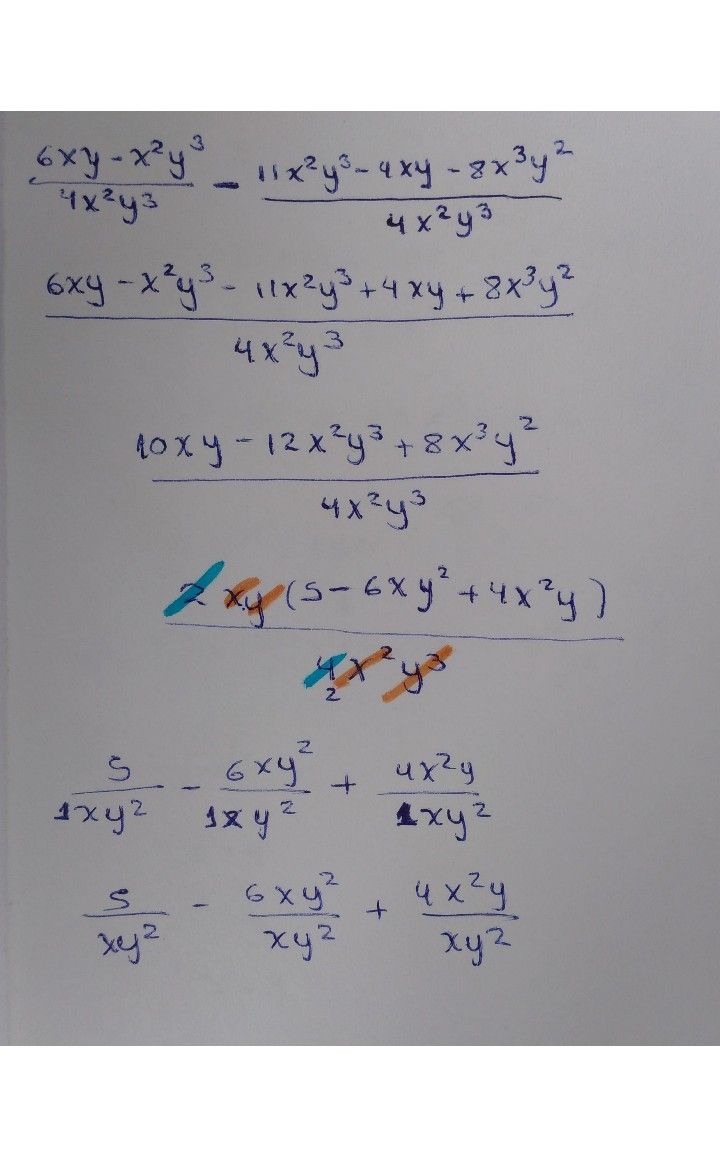 6xy - x²y³ / 4x²y³ - 11x²y³ - 4xy - 8x³y² / 4x²y³
6xy - x²y³ - 11x²y³ + 4xy + 8x³y² / 4x²y³
10xy - 12x²y³ + 8x³y² / 4x²y³
2xy (5 - 6xy² + 4x²y) / 4x²y³
2
5 / 1xy² - 6xy² / 1xy² + 4x²y / 1xy²
5 / xy² - 6xy² / xy² + 4x²y / xy²